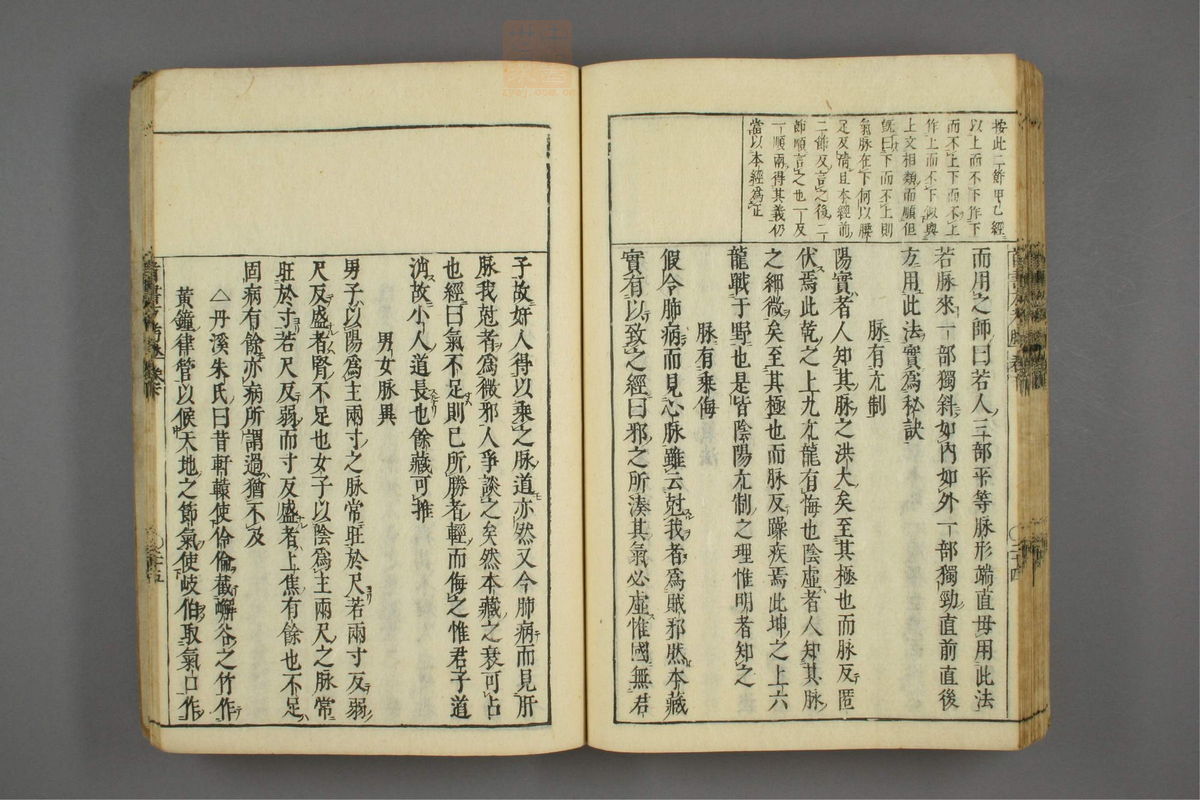 按此二節甲乙經
以上而不下作下
而不上下而不上
作上而不下似與
上文相類而順但
既曰下而不上則
氣脉在下何以腰
足反清且本經前
二節反言之後二
節順言之也一反
一順兩得其義仍
當以本經爲正
而用之師曰若人三部平等脉形端直毋用此法
若脉來一部獨斜如內如外一部獨勁直前直後
方用此法實爲秘訣
脉有亢制
陽實者人知其脉之洪大矣至其極也而脉反匿
伏焉此乾之上九亢龍有悔也陰虛者人知其脉
之細微矣至其極也而脉反躁疾焉此坤之上六
龍戰于野也是皆陰陽亢制之理惟明者知之
脉有乘侮
假令肺病而見心脉雖云尅我者爲賊邪然本藏
實有以致之經曰邪之所湊其氣必虛惟國無君
二十四
子故奸人得以乘之脉道亦然又令肺病而見肝
脉我尅者爲微邪人爭談之矣然本藏之衰可占
也經曰氣不足則已所勝者輕而侮之惟君子道
消故小人道長也餘藏可推
男女脉異
男子以陽爲主兩寸之脉常旺於尺若兩寸反弱
尺反盛者腎不足也女子以陰爲主兩尺之脉常
旺於寸若尺反弱而寸反盛者上焦有餘也不足
固病有餘亦病所謂過猶不及
△丹溪朱氏曰昔軒轅使伶倫截嶰谷之竹作
黃鐘律管以候天地之節氣使岐伯取氣口作
二十五